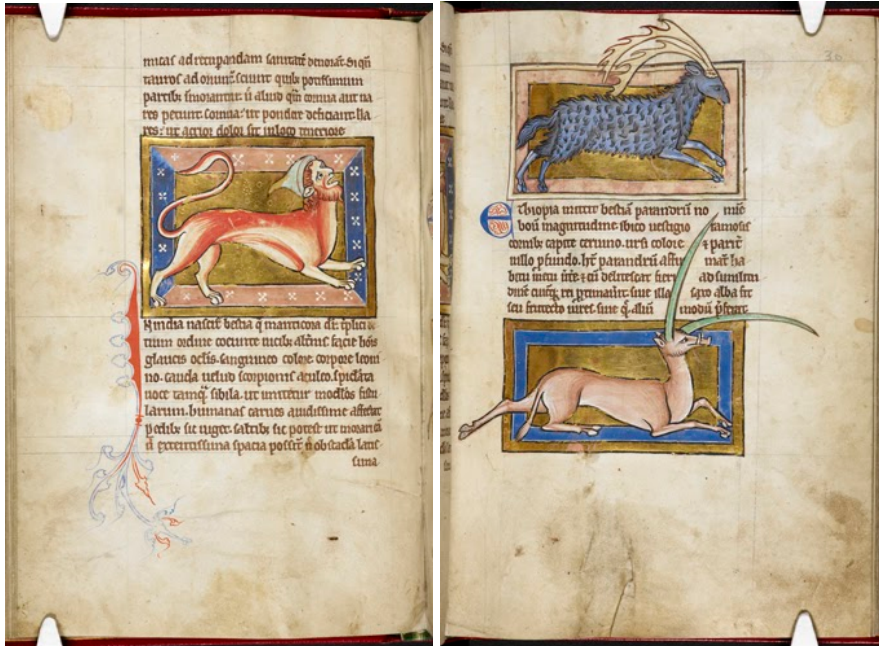 micas ad recuperandam sanitatē deuorāt. Si qn̄
tauros ad oriunt̄ sciunt quib; potissimum
partib; īmorantur. n̄ aliud qm̄ cornua aut na
res petunt. cornua: ut pondere deficiant. na
res: ut acrior dolor sit in loco teneriore
In india nascit̄ bestia q̄ manticora dr̄. t̄plici
tium ordine coeunte uicib; alt̄nis. facie hōis
glaucis oclis. sanguineo colore. corpore leoni
no. cauda uelud scorpionis aculeo. spiclata
uoce tamq̄ sibila. ut imitetur modlos fistu
larum. humanas carnes auidissime affectat
pedib; sic uiget. saltib; sic potest ut morari eā
n̄ extentissima spacia possīt n̄ obstacla latis
sima
36
Ethiopia mittit bestiā parandrū no mīe
boū magnitudine ibico uestigio ramosis
cornib; capite ceruino. ursi colore & parit̄
uillo p̄fundo. hc̄ parandrū affir mant̄ ha
bitū metu ūtere & cū delitescat fieri ad similitu
dinē cuicūq; rei p̄ximauit: siue illa saxo alba sit
seu frutecto uiret. siue q̄ aliū modū p̄ferat